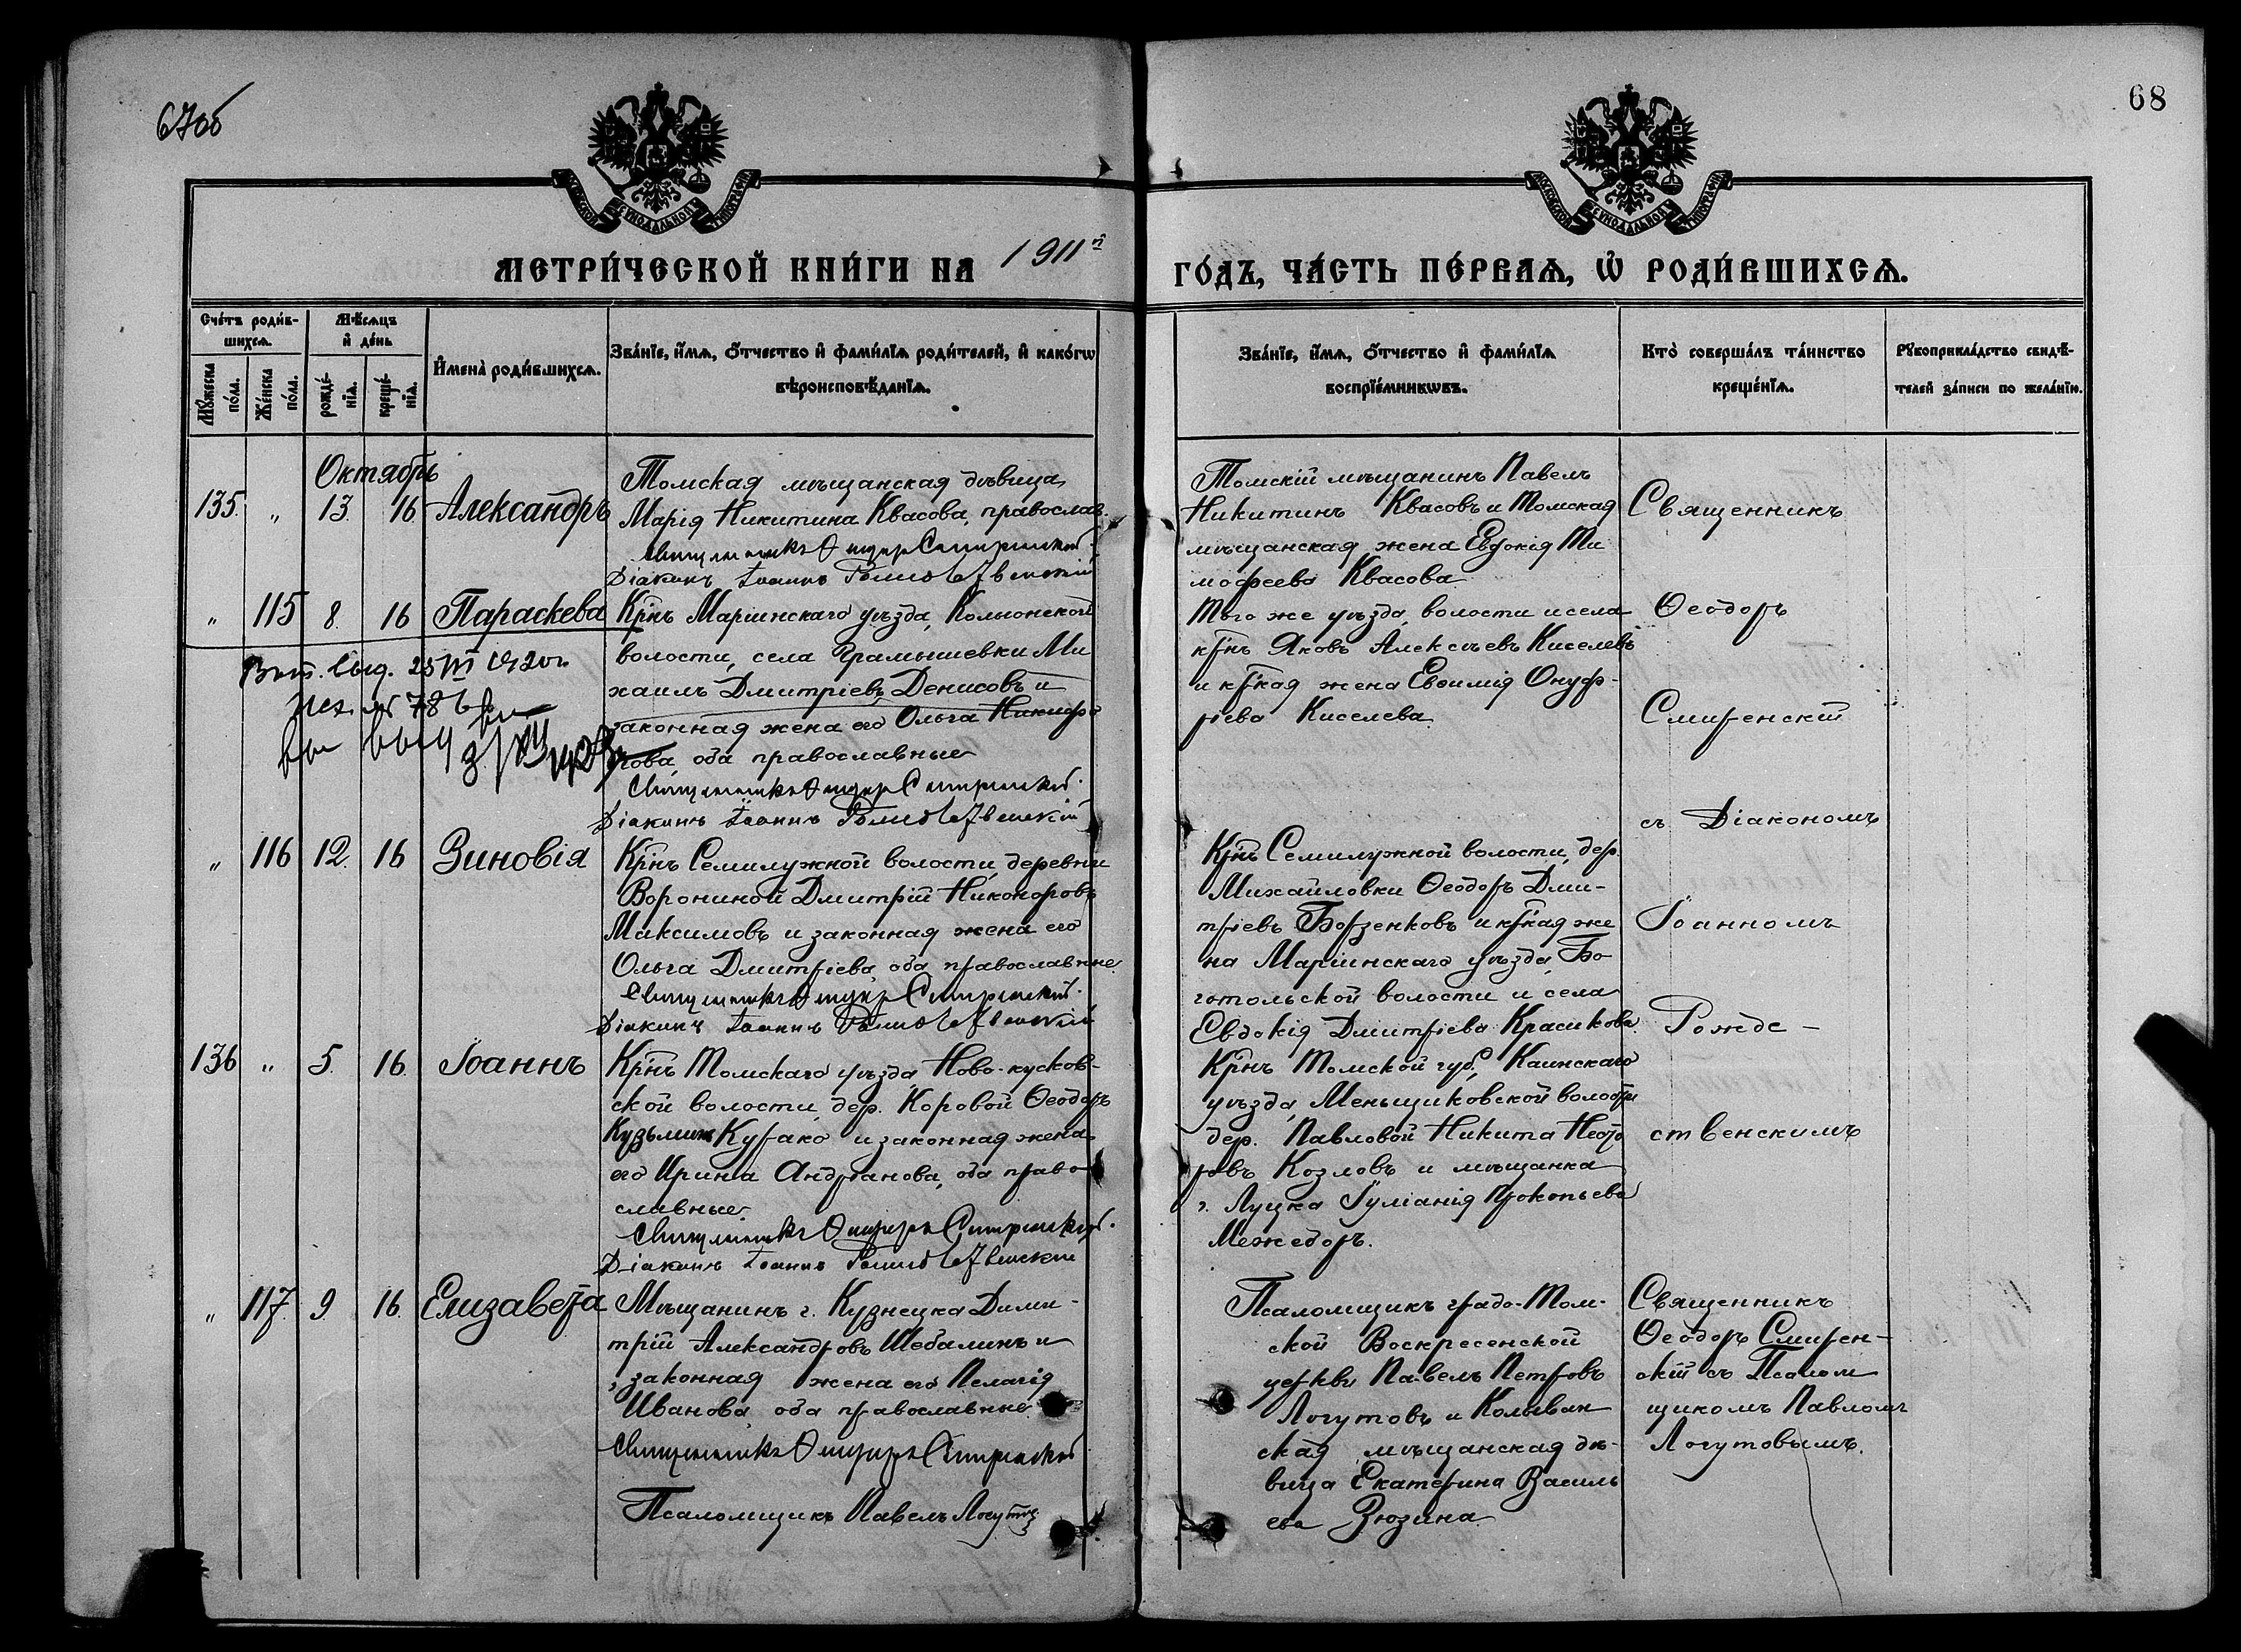 67об
68
МОСКОВСКОЙ СѴНОДАЛЬНОЙ ТИПОГРАФІИ
МОСКОВСКОЙ СѴНОДАЛЬНОЙ ТИПОГРАФІИ
МЕТРИ́ЧЕСКОЙ КНИ́ГИ НА 1911й
ГО́ДЪ, ЧА́СТЬ ПЕ́РВАѦ, Ѡ҆ РОДИ́ВШИХСѦ.
Сче́тъ роди́в-
шихсѧ.
Мѣ́сѧцъ
и҆ де́нь
Мꙋ́жеска
по́ла.
Же́нска
по́ла.
рожде́-
нїѧ.
креще́-
нїѧ.
И҆мена̀ роди́вшихсѧ.
Зва́нїе, и҆́мѧ, ѻ҆́тчество и҆ фами́лїѧ роди́телей, и҆ како́гѡ
вѣроисповѣ́данїѧ.
Зва́нїе, и҆́мѧ, ѻ҆́тчество и҆ фами́лїѧ
воспрїе́мникѡвъ.
Кто̀ соверша́лъ та́инство
креще́нїѧ.
Рꙋкоприкла́дство свидѣ́-
телей за́писи по жела́нїю.
Октябрь
135. " 13. 16. Александръ
Томская мѣщанская дѣвица
Марія Никитина Квасова, православ.
Священникъ Ѳеодоръ Смиренскій.
Діаконъ Іоаннъ Рождественскій
Томскій мѣщанинъ Павелъ
Никитинъ Квасовъ и Томская
мѣщанская жена Евдокія Ти
мофеева Квасова
Священникъ
" 115 8. 16 Параскева
Кр̃нъ Маріинскаго уѣзда, Колыонской
волости, села Грамышевки Ми
хаилъ Дмитріевъ Денисовъ и
законная жена его Ольга Никифо
рова, оба православные
Священникъ Ѳеодоръ Смиренскій.
Діаконъ Іоаннъ Рождественскій
выд. 25 III 1920г.
№ 786
выд
Того же уѣзда, волости и села
кр̃нъ Яковъ Алексѣевъ Киселевъ
и кр̃кая жена Евѳимія Онуф-
ріева Киселева
Ѳеодоръ
Смиренскій
съ Діакономъ
" 116 12. 16 Зиновія
Кр̃нъ Семилужной волости, деревни
Ворониной Дмитрій Никоноровъ
Максимовъ и законная жена его
Ольга Дмитріева, оба православные
Священникъ Ѳеодоръ Смиренскій.
Діаконъ Іоаннъ Рождественскій
Кр̃нъ Семилужной волости, дер.
Михайловки Ѳеодоръ Дми-
тріевъ Борзенковъ и кр̃кая же
на Маріинскаго уѣзда, Бо
готольской волости и села
Евдокія Дмитріева Красикова.
Іоанномъ
Рожде-
136 " 5. 16. Іоаннъ
Кр̃нъ Томскаго уѣзда, Ново-кусков-
ской волости, дер. Коровой Ѳеодоръ
Кузьминъ Курако и законная жена
его Ирина Андріанова, оба право
славные.
Священникъ Ѳеодоръ Смиренскій.
Діаконъ Іоаннъ Рождественскій
Кр̃нъ Томской губ. Каинскаго
уѣзда, Меньщиковской волости
дер. Павловой Никита Нес
ровъ Козловъ и мѣщанка
г. Луцка Іуліанія Прокопьева
Межедоръ.
ственскимъ
" 117. 9. 16. Елизавета
Мѣщанинъ г. Кузнецка Дими-
трій Александровъ Шебалинъ и
законная жена его Пелагія
Иванова, оба православные
Священникъ Ѳеодоръ Смиренскій
Псаломщикъ Павелъ Логутовъ
Псаломщикъ градо-Том-
ской Воскресенской
церкви Павелъ Петровъ
Логутовъ и Колыван
ская мѣщанская дѣ-
вица Екатерина Василь
ева Зюзина
Священникъ
Ѳеодоръ Смирен-
скій съ Псалом
щикомъ Павломъ
Логутовымъ.